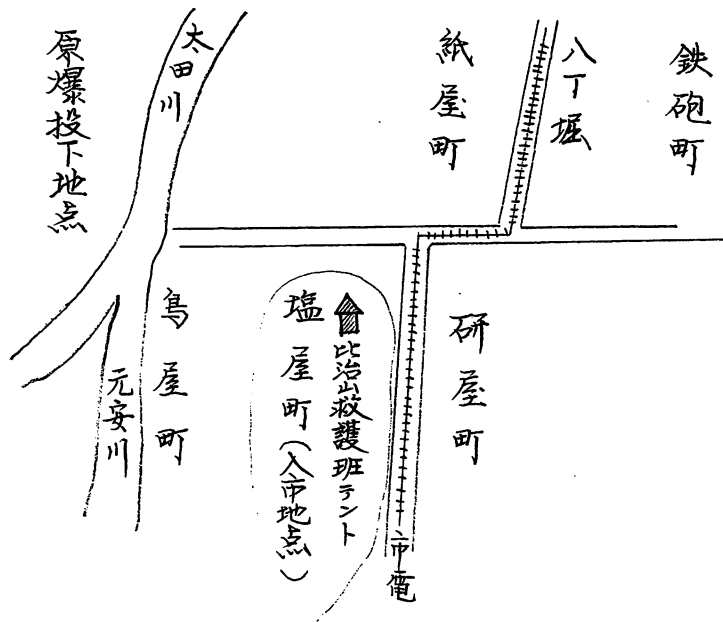 鉄砲町
八丁堀
紙屋町
太田川
原爆投下地点
研屋町
比治山救護班テント
塩屋町(入市地点)
鳥屋町
元安川
市電